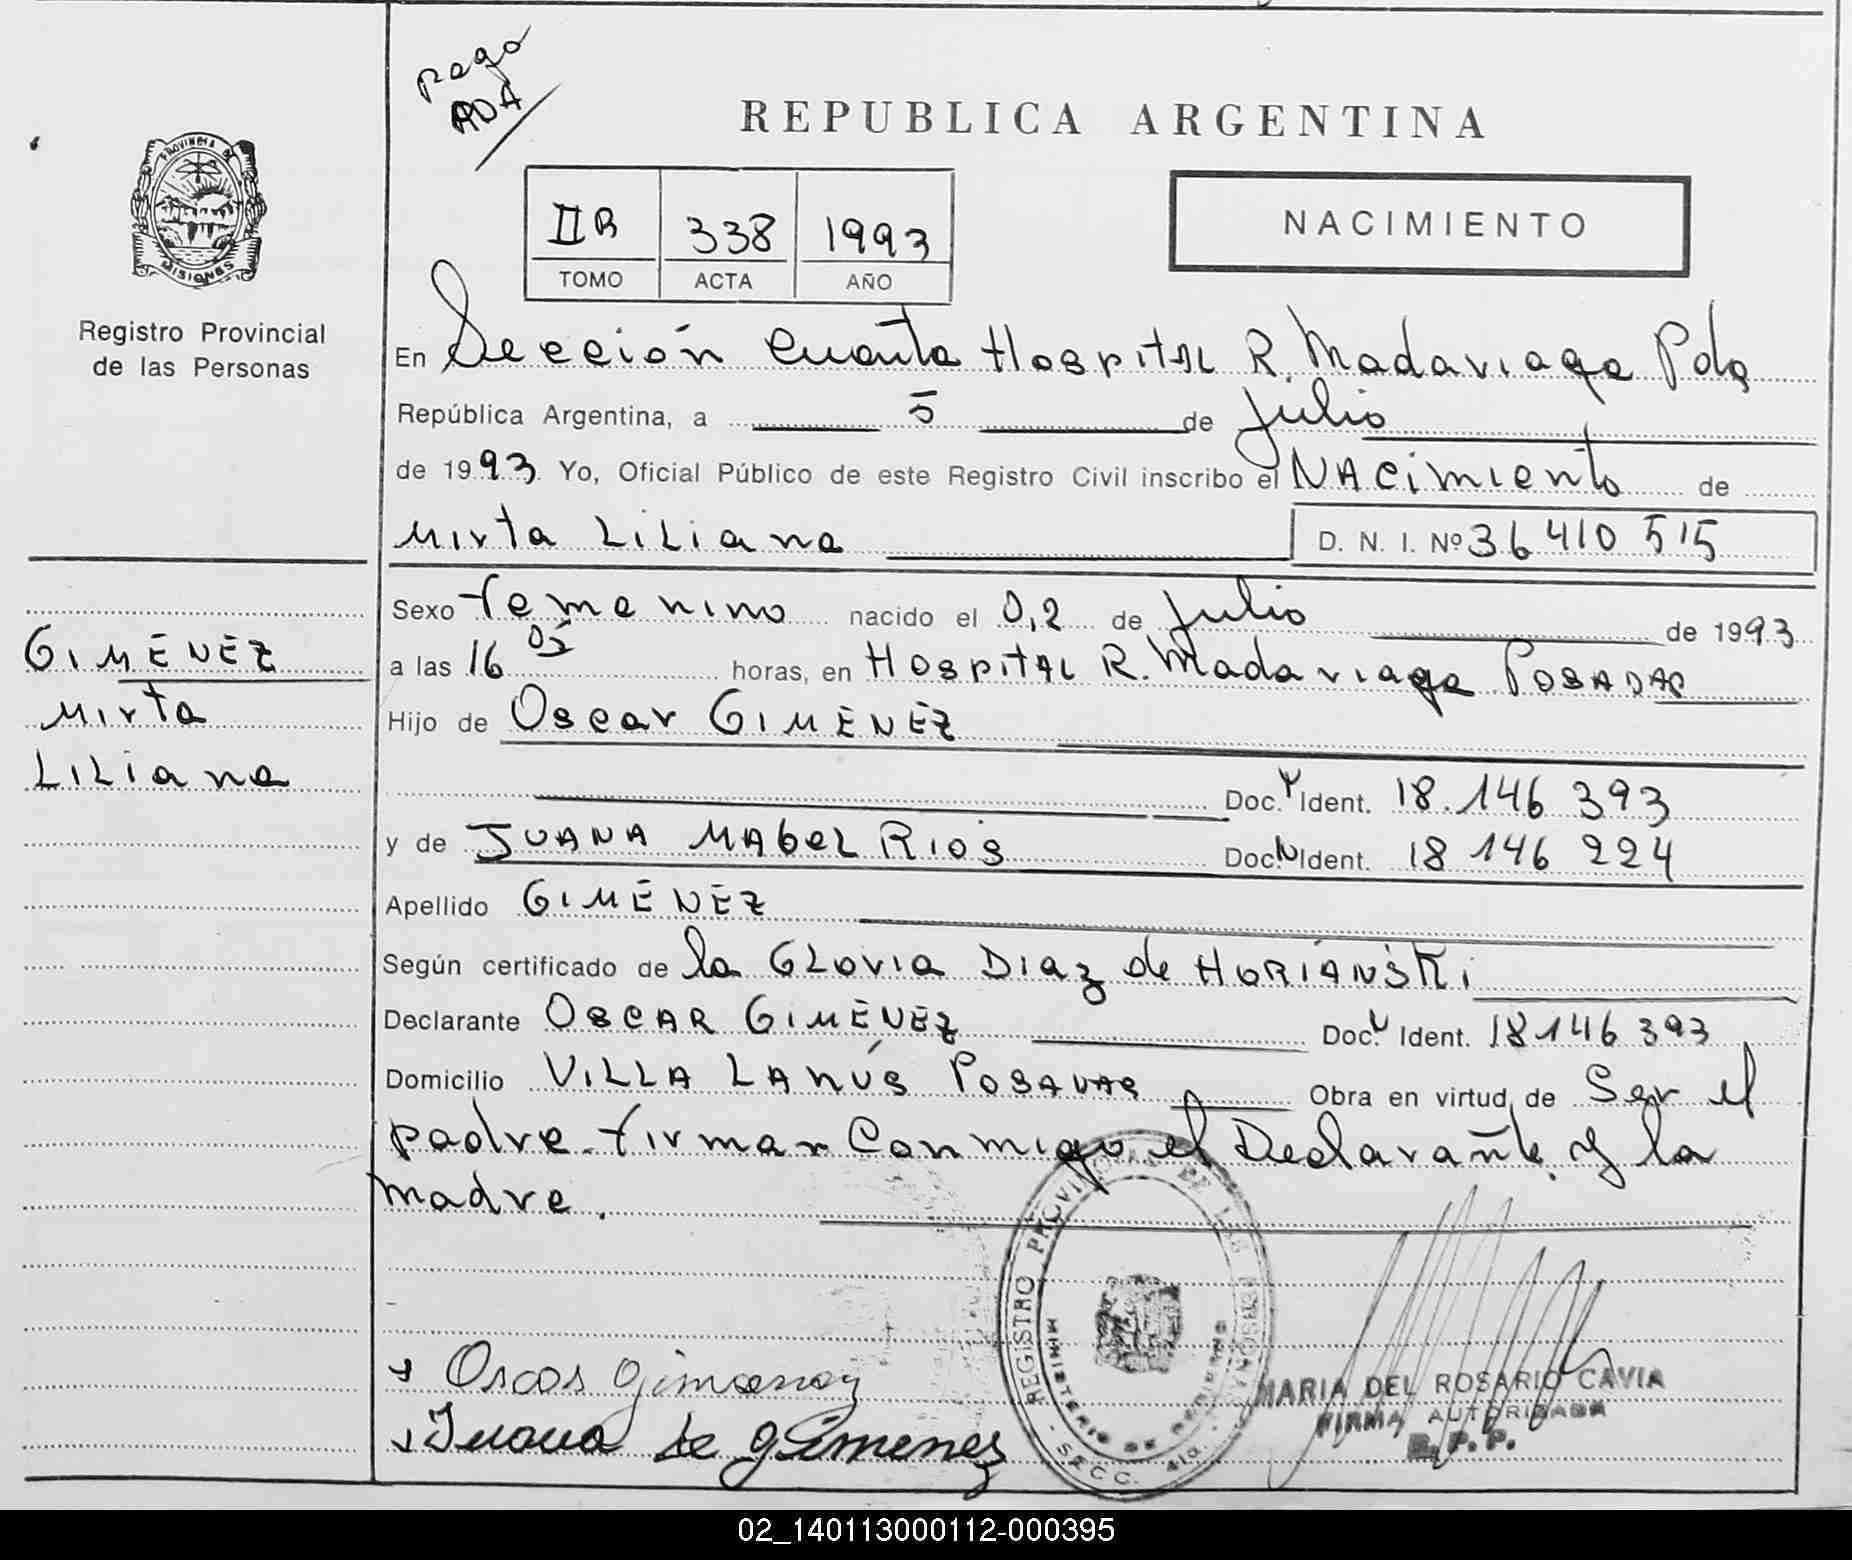 pago
ADA
REPUBLICA ARGENTINA
PROVINCIA DE
MISIONES
II B 338 1993
TOMO ACTA AÑO
NACIMIENTO
Registro Provincial
de las Personas
En Sección Cuarta Hospital R. Madariaga Pdas
República Argentina, a 5 de Julio
de 1993 Yo, Oficial Público de este Registro Civil inscribo el NACimiento de
Mirta LiLiana D. N. I. Nº 36 410 515
Sexo femenino nacido el 02 de Julio de 1993
GIMÉNEZ
Mirta
LiLiana
a las 16 05 horas, en HospitAL R. Madariaga POSADAS
Hijo de Oscar GIMÉNEZ
Doc. Ident. 18.146 393
y de JUANA MAbeL RIOS Doc. Ident. 18 146 224
Apellido GIMÉNEZ
Según certificado de la GLoria Diaz de HORIANSKi
Declarante OSCAR GIMÉNEZ Doc. Ident. 18146 393
Domicilio VILLA LANÚS POSADAS Obra en virtud de Ser el
padre. firman Conmigo el Declarante y la
madre.
Oscar Gimenez
Juana de gimenez
REGISTRO PROVINCIAL DE LAS PERSONAS
MINISTERIO DE GOBIERNO
SECC. 4ta.
MARIA DEL ROSARIO CAVIA
FIRMA AUTORIZADA
R.P.P.
02_140113000112-000395